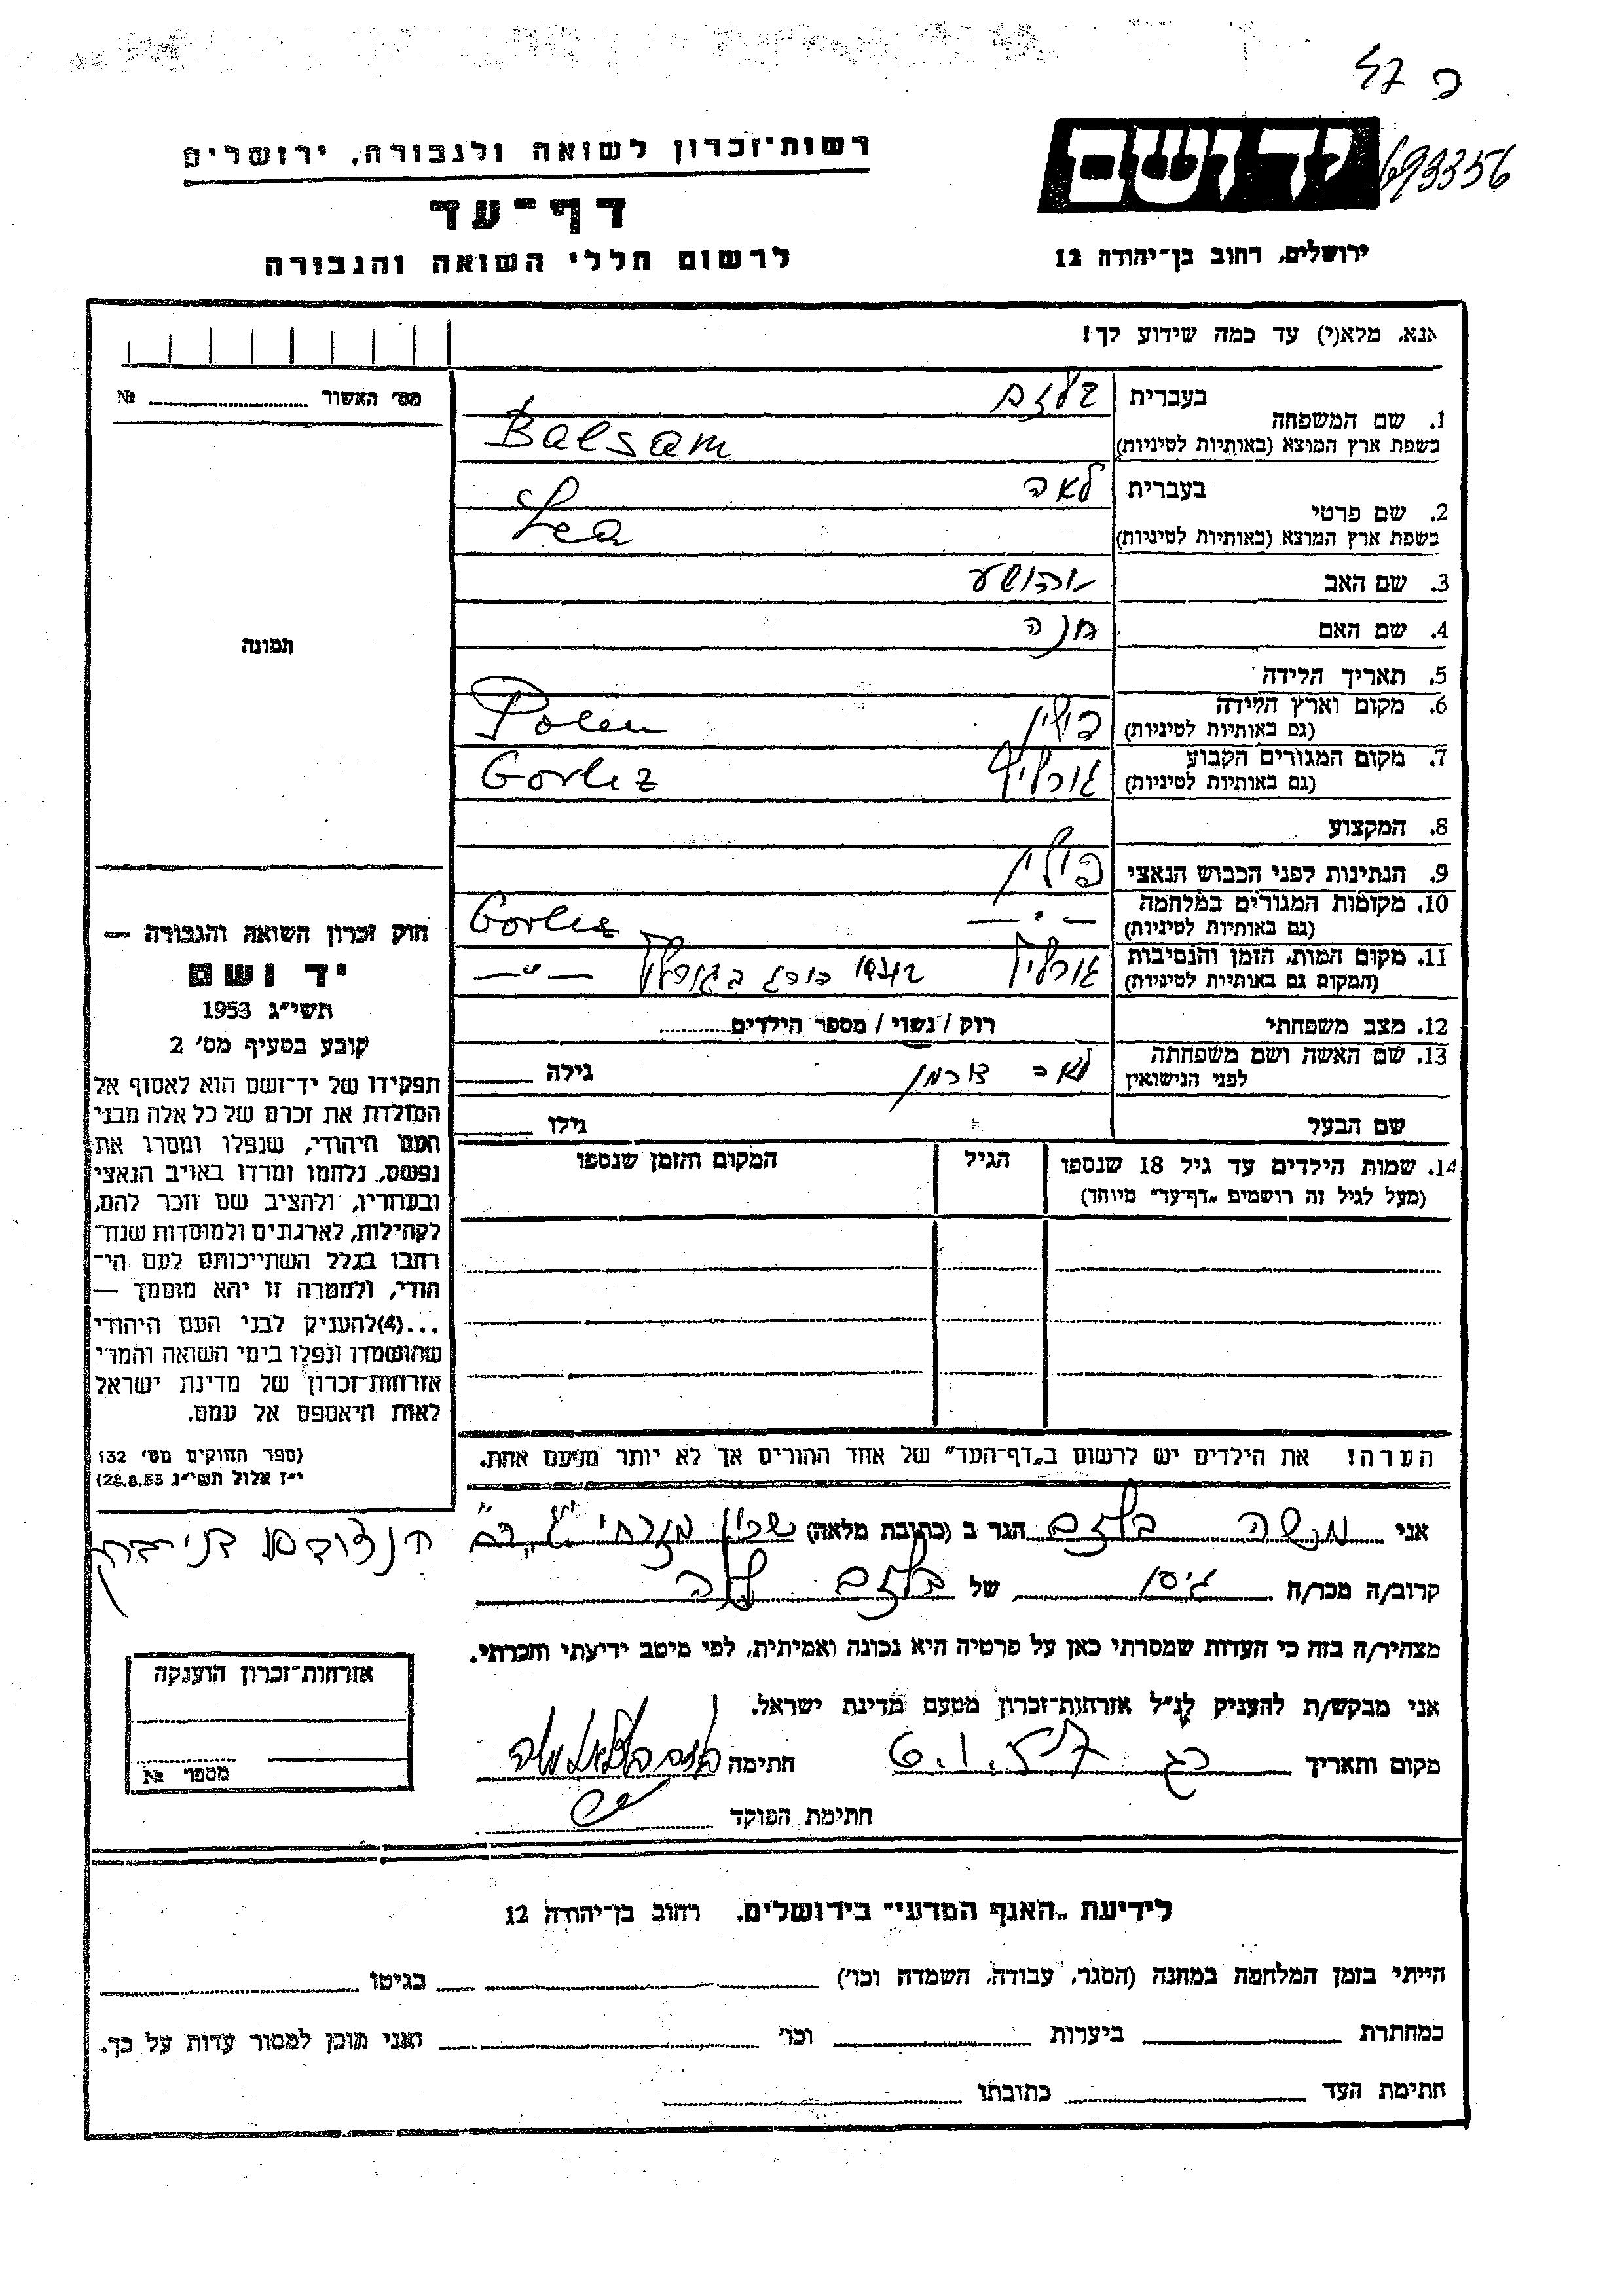 פ 47
693356
יד ושם
רשות־זכרון לשואה ולגבורה, ירושלים
דף־עד
לרשום חללי השואה והגבורה
ירושלים, רחוב בן־יהודה 12
אנא, מלא(י) עד כמה שידוע לך!
מס' האשור № 
1. שם המשפחה
בעברית בלזם
בשפת ארץ המוצא (באותיות לטיניות) Balsam
2. שם פרטי
בעברית לאה
בשפת ארץ המוצא (באותיות לטיניות) Lea
3. שם האב יהושע
4. שם האם חנה
תמונה
5. תאריך הלידה
6. מקום וארץ הלידה (גם באותיות לטיניות) פולין Polen
7. מקום המגורים הקבוע (גם באותיות לטיניות) גורליץ Gorliz
8. המקצוע
9. הנתינות לפני הכבוש הנאצי פולין
10. מקומות המגורים במלחמה (גם באותיות לטיניות) — " — Gorliz
11. מקום המות, הזמן והנסיבות (המקום גם באותיות לטיניות) גורליץ בגורליץ — " —
12. מצב משפחתי רוק / נשוי / מספר הילדים
13. שם האשה ושם משפחתה לפני הנישואין לאה גילה
שם הבעל גילו
14. שמות הילדים עד גיל 18 שנספו הגיל המקום והזמן שנספו
(מעל לגיל זה רושמים „דף־עד" מיוחד)
חוק זכרון השואה והגבורה —
יד ושם
תשי"ג 1953
קובע בסעיף מס' 2
תפקידו של יד־ושם הוא לאסוף אל
המולדת את זכרם של כל אלה מבני
העם היהודי, שנפלו ומסרו את
נפשם, נלחמו ומרדו באויב הנאצי
ובעוזריו, ולהציב שם וזכר להם,
לקהילות, לארגונים ולמוסדות שנח־
רבו בגלל השתייכותם לעם הי־
הודי, ולמטרה זו יהא מוסמך —
...(4)להעניק לבני העם היהודי
שהושמדו ונפלו בימי השואה והמרי
אזרחות־זכרון של מדינת ישראל
לאות היאספם אל עמם.
(ספר החוקים מס' 132
י"ז אלול תשי"ג 28.8.53)
הערה! את הילדים יש לרשום ב„דף־העד" של אחד ההורים אך לא יותר מפעם אחת.
אני משה בלזם הגר ב (כתובת מלאה) שכון מזרחי
קרוב/ה מכר/ה גיסו של בלזם לאה
מצהיר/ה בזה כי העדות שמסרתי כאן על פרטיה היא נכונה ואמיתית, לפי מיטב ידיעתי והכרתי.
אני מבקש/ת להעניק לנ"ל אזרחות־זכרון מטעם מדינת ישראל.
מקום ותאריך 6.1.57 חתימה
חתימת הפוקד
אזרחות־זכרון הוענקה
מספר №
לידיעת „האגף המדעי" בירושלים, רחוב בן־יהודה 12
הייתי בזמן המלחמה במחנה (הסגר, עבודה, השמדה וכו') בגיטו
במחתרת ביערות וכו' ואני מוכן למסור עדות על כך.
חתימת העד כתובתו